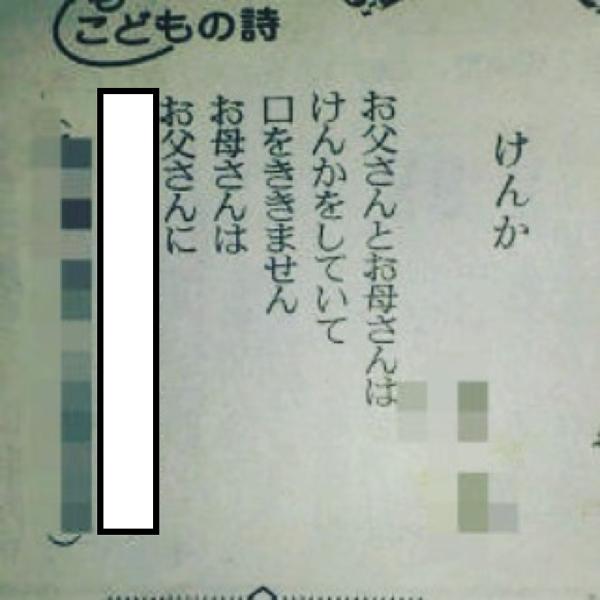 こどもの詩
けんか
お父さんとお母さんは
けんかをしていて
口をききません
お母さんは
お父さんに